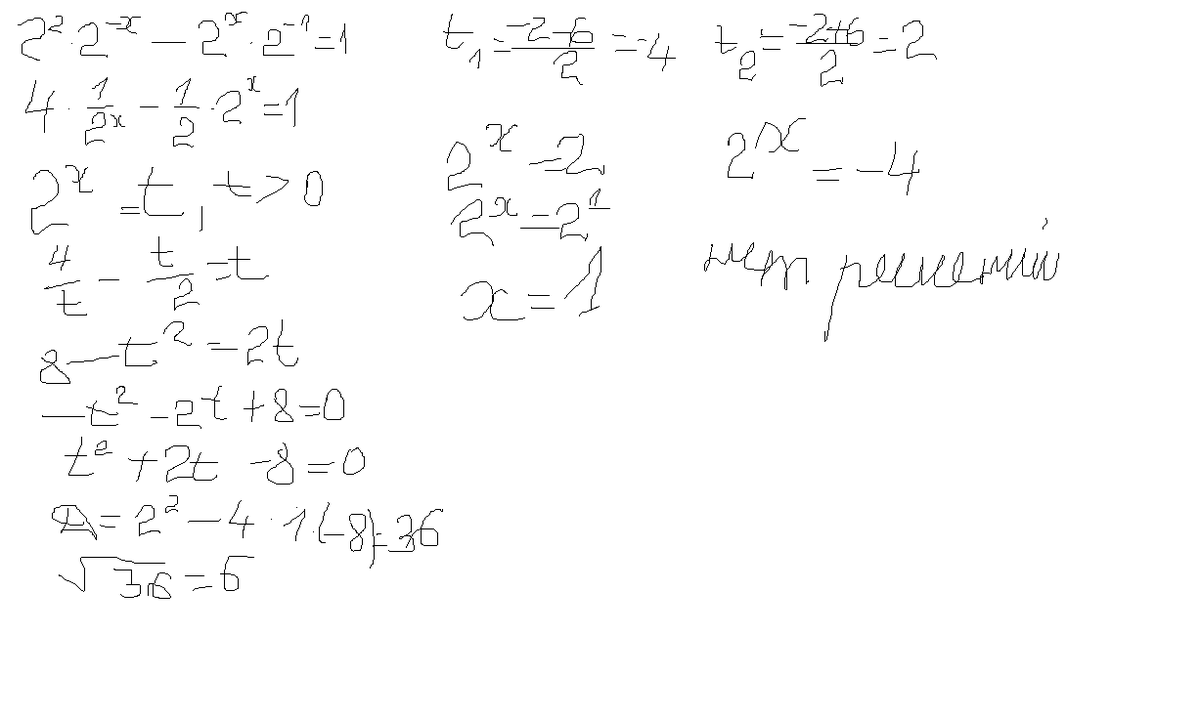 2² · 2⁻ˣ − 2ˣ · 2⁻¹ = 1
4 · 1/2ˣ − 1/2 · 2ˣ = 1
2ˣ = t, t > 0
4/t − t/2 = t
8 − t² = 2t
−t² − 2t + 8 = 0
t² + 2t − 8 = 0
D = 2² − 4 · 1 · (−8) = 36
√36 = 6
t₁ = (−2−6)/2 = −4
t₂ = (−2+6)/2 = 2
2ˣ = 2
2ˣ = 2¹
x = 1
2ˣ = −4
нет решений